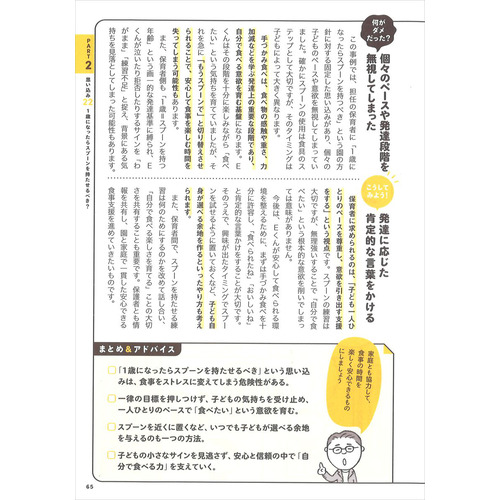 何が
ダメ
だった？
個々のペースや発達段階を
無視してしまった
この事例では、担任の保育者に「1歳に
なったらスプーンを持つべき」という園の方
針に対する固定した思い込みがあり、個々の
子どものペースや意欲を無視してしまってい
ました。確かにスプーンの使用は食具のス
テップとして大切ですが、そのタイミングは
子どもによって大きく異なります。
手づかみ食べは、食べ物の感触や重さ、力
加減などを学ぶ発達上の重要な段階であり、
自分で食べる意欲を育む基盤になります。E
くんはその段階を十分に楽しみながら「食べ
たい」という気持ちを育てていましたが、そ
れを急に「もうスプーンで」と切り替えさせ
られることで、安心して食事を楽しむ時間を
失ってしまう可能性もあります。
また、保育者側も「1歳＝スプーンを持つ
年齢」という画一的な発達基準に縛られ、E
くんが泣いたり拒否したりするサインを「わ
がまま」「練習不足」と捉え、背景にある気
持ちを見落としてしまった可能性もあります。
こうして
みよう！
発達に応じた
肯定的な言葉をかける
保育者に求められるのは、「子ども一人ひ
とりのペースを尊重し、意欲を引き出す支援
をする」という視点です。スプーンの練習は
大切ですが、無理強いすることで「自分で食
べたい」という根本的な意欲を削いでしまっ
ては意味がありません。
今後は、Eくんが安心して食べられる環
境を整えるために、まずは手づかみ食べを十
分に許容し、「食べられたね」「おいしいね」
と肯定的な言葉がけをすることが大切です。
そのうえで、興味が出たタイミングでスプー
ンを試せるように置いておくなど、子ども自
身が選べる余地を作るといったやり方も考え
られます。
また、保育者間で、スプーンを持たせる練
習は何のためにするのかを改めて話し合い、
「自分で食べる楽しさを育てる」ことの大切
さを共有することも重要です。保護者とも情
報を共有し、園と家庭で一貫した安心できる
食事支援を進めていきたいものです。
PART 2 思い込み 22 1歳になったらスプーンを持たせるべき？
まとめ＆アドバイス
「1歳になったらスプーンを持たせるべき」という思い込
みは、食事をストレスに変えてしまう危険性がある。
一律の目標を押しつけず、子どもの気持ちを受け止め、
一人ひとりのペースで「食べたい」という意欲を育む。
スプーンを近くに置くなど、いつでも子どもが選べる余地
を与えるのも一つの方法。
子どもの小さなサインを見逃さず、安心と信頼の中で「自
分で食べる力」を支えていく。
家庭とも協力して、
食事の時間を
楽しく安心できるもの
にしましょう
65